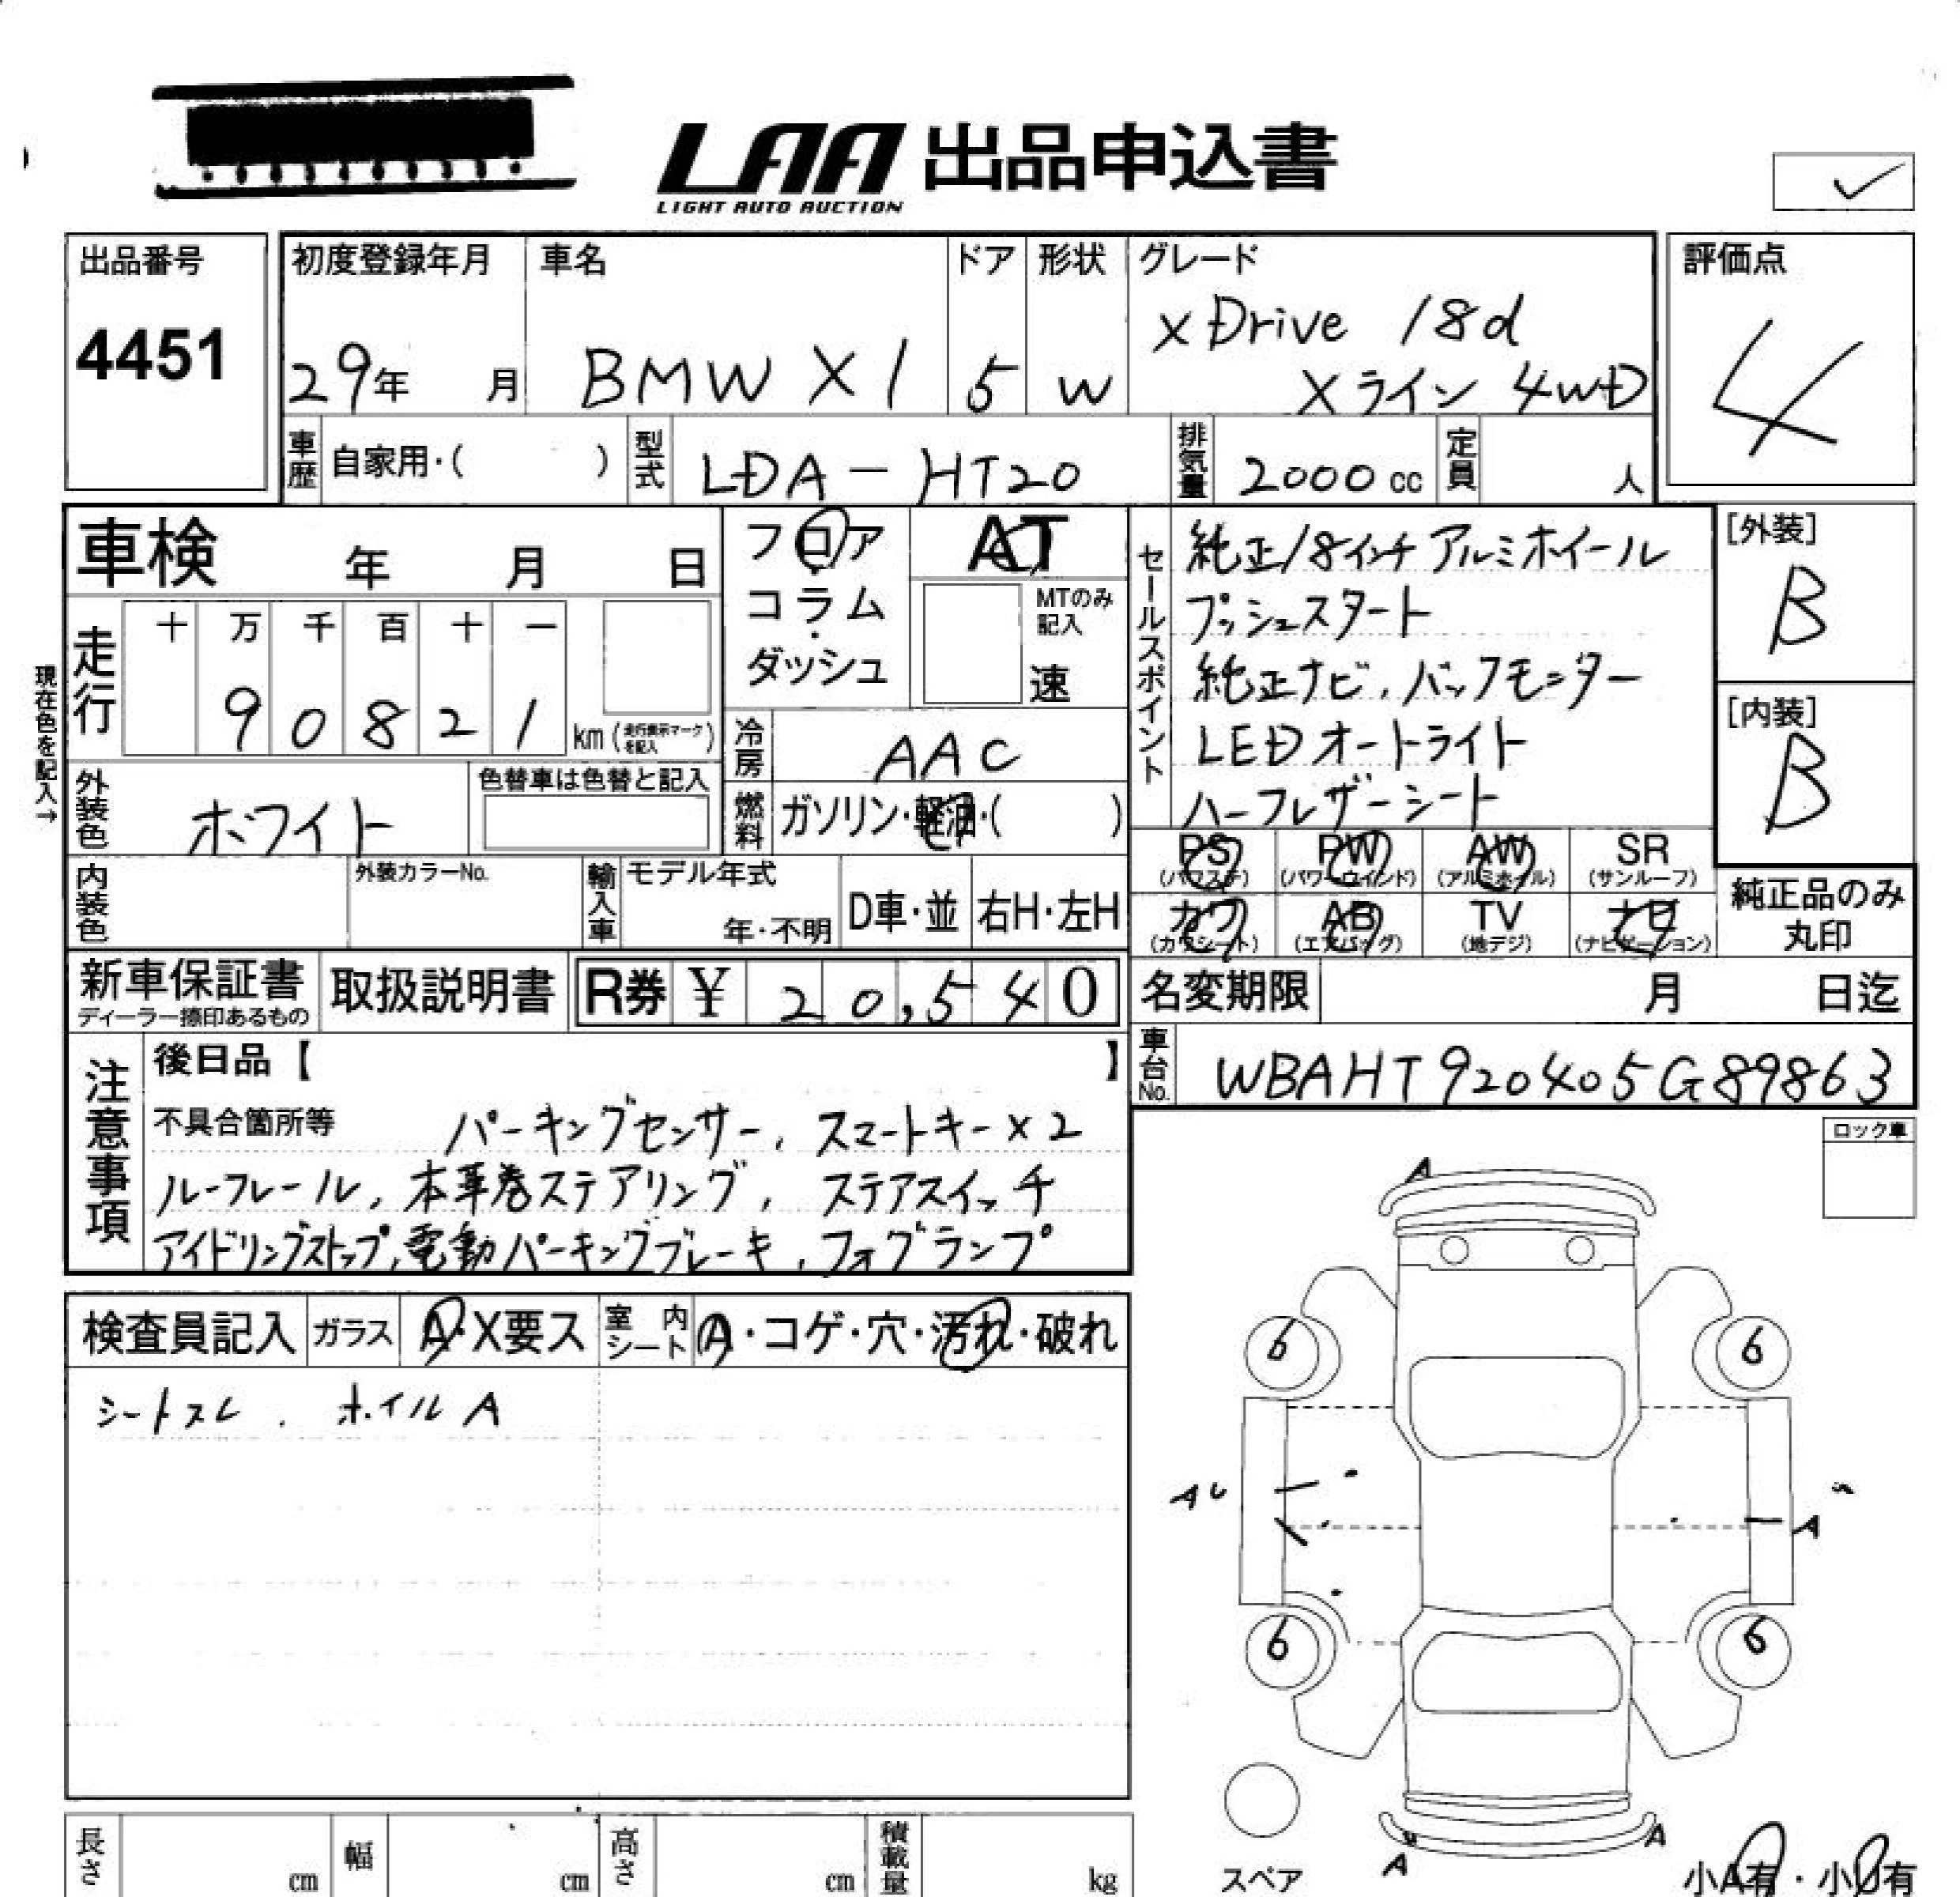 LAA 出品申込書
LIGHT AUTO AUCTION
出品番号
4451
初度登録年月
29年 月
車名
BMW X1
ドア
5
形状
W
グレード
xDrive 18d
Xライン 4WD
評価点
4
車歴 自家用・( )
型式 LDA-HT20
排気量 2000cc
定員 人
車検 年 月 日
フロア・コラム・ダッシュ
AT
MTのみ記入
速
セールスポイント
純正18インチアルミホイール
プッシュスタート
純正ナビ、バックモニター
LEDオートライト
ハーフレザーシート
[外装]
B
[内装]
B
現在色を記入→
走行
十 万 千 百 十 一
9 0 8 2 1
km(走行表示マークを記入)
冷房 AAC
燃料 ガソリン・軽油・( )
外装色 ホワイト
色替車は色替と記入
PS (パワステ)
PW (パワーウィンド)
AW (アルミホイル)
SR (サンルーフ)
カワ (カワシート)
AB (エアバッグ)
TV (地デジ)
ナビ (ナビゲーション)
純正品のみ丸印
内装色
外装カラーNo.
輸入車
モデル年式
年・不明
D車・並
右H・左H
新車保証書
ディーラー捺印あるもの
取扱説明書
R券 ¥ 20,540
名変期限 月 日迄
車台No. WBAHT920405G89863
注意事項
後日品【 】
不具合箇所等 パーキングセンサー、スマートキー×2
ルーフレール、本革巻ステアリング、ステアスイッチ
アイドリングストップ、電動パーキングブレーキ、フォグランプ
ロック車
検査員記入
ガラス A・X要ス
室内シート A・コゲ・穴・汚れ・破れ
シートスレ、ホイルA
A
6
6
AU
A
6
6
A
A
スペア
小A有・小U有
長さ cm
幅 cm
高さ cm
積載量 kg